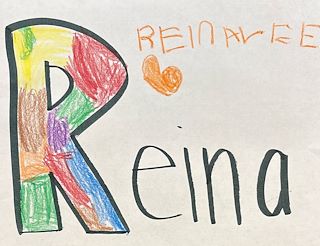 REINAVEE
Reina